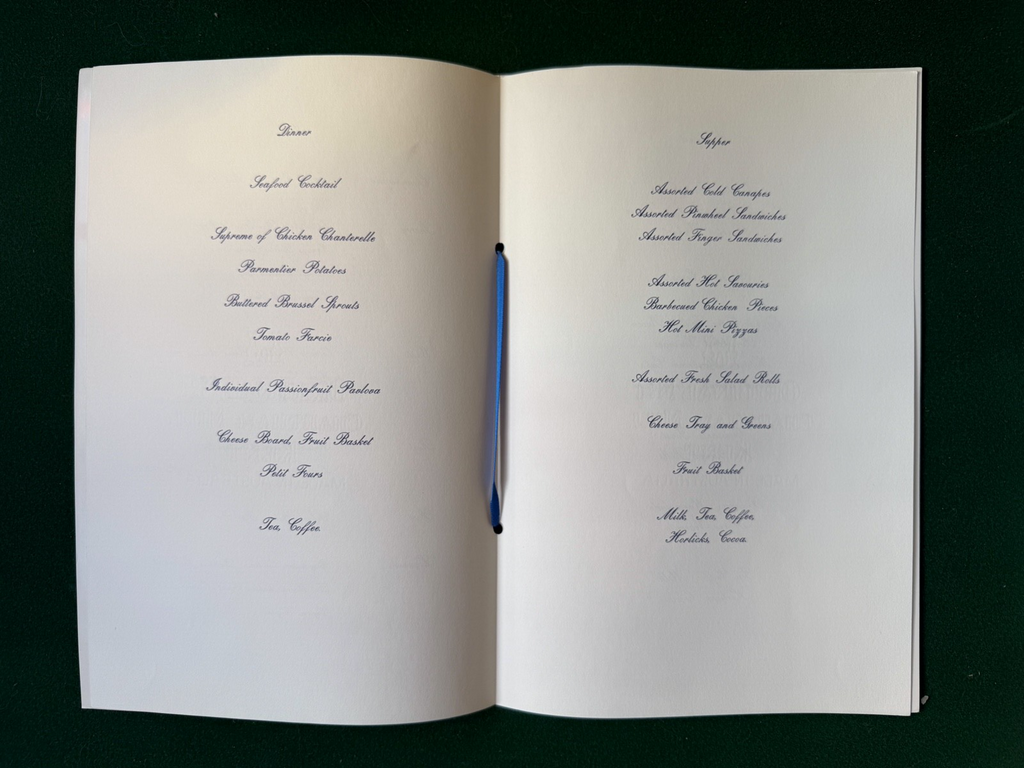 Dinner
Seafood Cocktail
Supreme of Chicken Chanterelle
Parmentier Potatoes
Buttered Brussel Sprouts
Tomato Farcie
Individual Passionfruit Pavlova
Cheese Board, Fruit Basket
Petit Fours
Tea, Coffee.
Supper
Assorted Cold Canapes
Assorted Pinwheel Sandwiches
Assorted Finger Sandwiches
Assorted Hot Savouries
Barbecued Chicken Pieces
Hot Mini Pizzas
Assorted Fresh Salad Rolls
Cheese Tray and Greens
Fruit Basket
Milk, Tea, Coffee,
Horlicks, Cocoa.